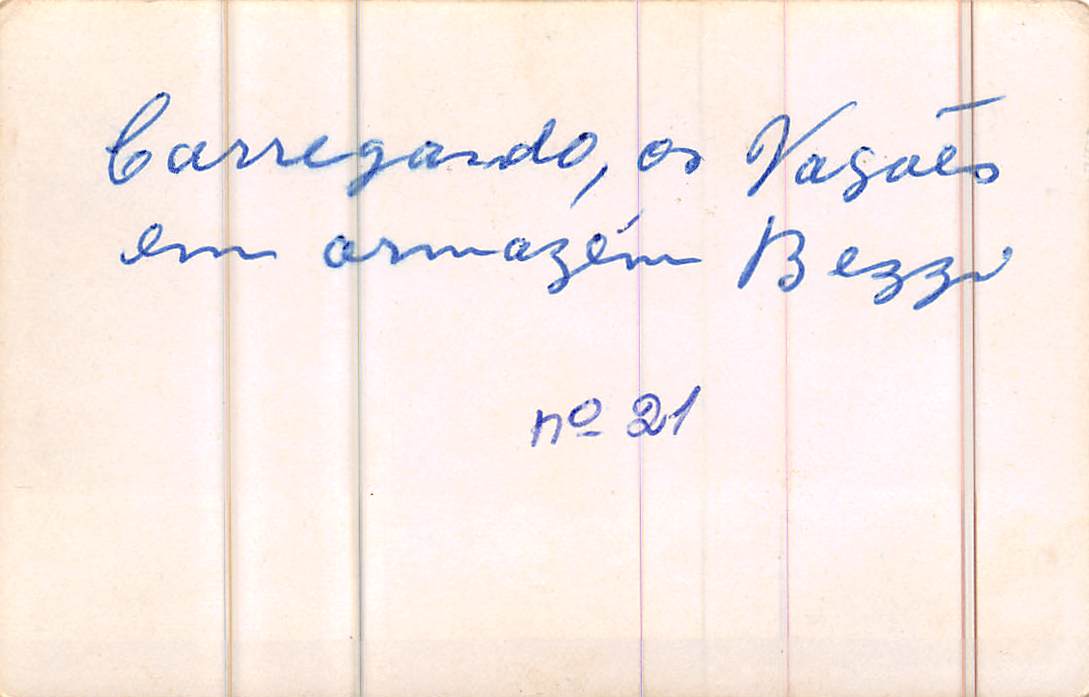 Carregando, os Vagões
em armazém Bezzi
nº 21